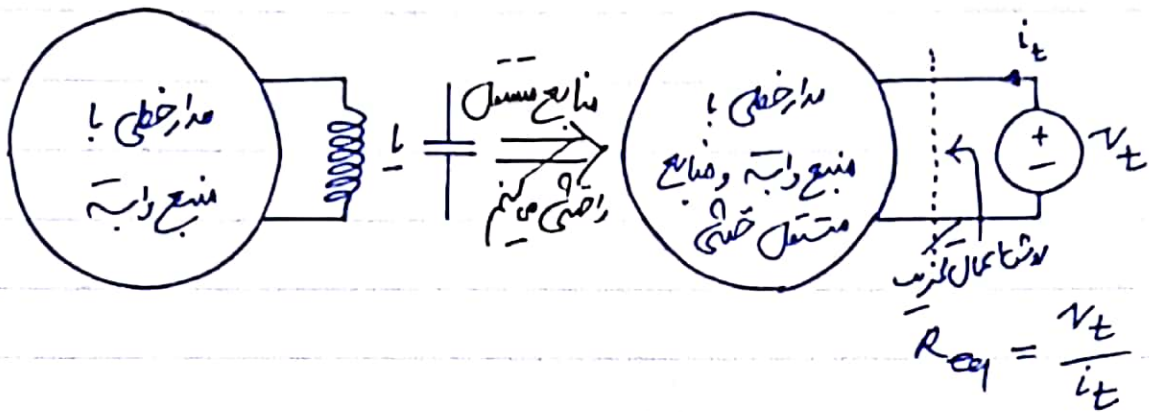 مدار خطی با
منبع وابسته
یا
منابع مستقل
را خنثی می‌کنیم
مدار خطی با
منبع وابسته و منابع
مستقل خنثی
i_t
+
−
v_t
روش اعمال تحریک
R_eq = v_t / i_t